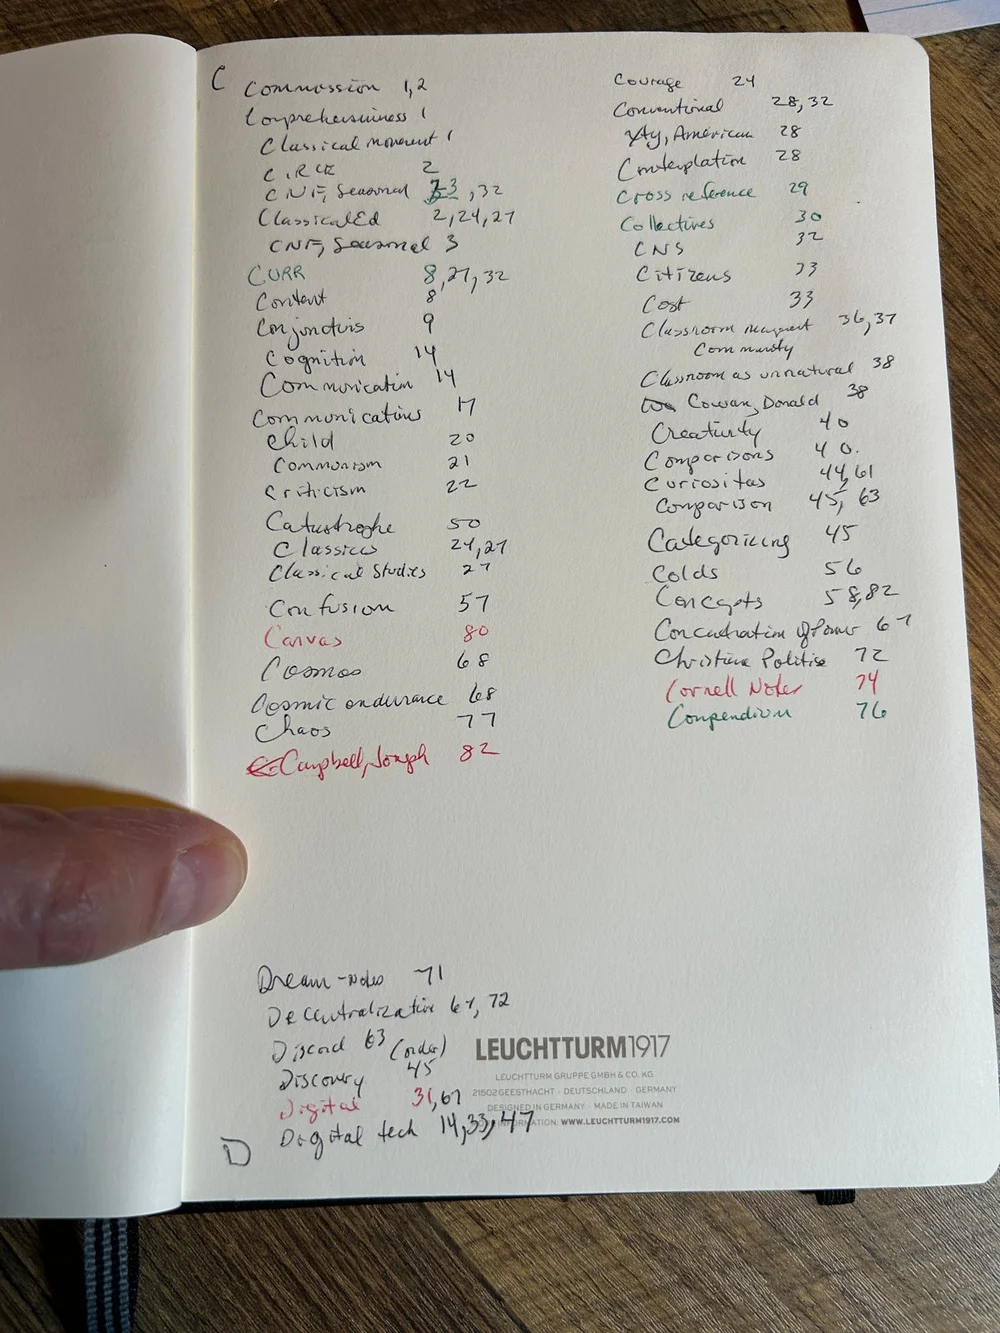 C
Commission 1,2
Comprehensiveness 1
Classical movement 1
CiRCE 2
CNF, Seasonal 3, 32
Classical Ed 2, 24, 27
CNF, Seasonal 3
CURR 8, 27, 32
Content 8
9
Cognition 14
Communication 14
Communications 17
Child 20
Communism 21
Criticism 22
Catastrophe 50
Classics 24, 27
Classical Studies 27
Confusion 57
Canvas 80
Cosmos 68
Cosmic endurance 68
Chaos 77
Campbell, Joseph 82
Courage 24
Conventional 28, 32
Xty, American 28
Contemplation 28
Cross reference 29
Collectives 30
CNS 32
Citizens 33
Cost 33
Classroom 36, 37
Community
Classroom as unnatural 38
Cowan, Donald 38
Creativity 40
Comparisons 40.
Curiositas 44, 61
Comparison 45, 63
Categorizing 45
Colds 56
Concepts 58, 82
Concentration of Power 67
Christian 72
Cornell Notes 74
Compendium 76
Dream-notes 71
Decentralization 67, 72
Discord 63 (order)
Discovery 45
Digital 31, 67
Digital tech 14, 33, 47
D
LEUCHTTURM1917
LEUCHTTURM GRUPPE GMBH & CO. KG
21502 GEESTHACHT · DEUTSCHLAND · GERMANY
DESIGNED IN GERMANY · MADE IN TAIWAN
INFORMATION: WWW.LEUCHTTURM1917.COM